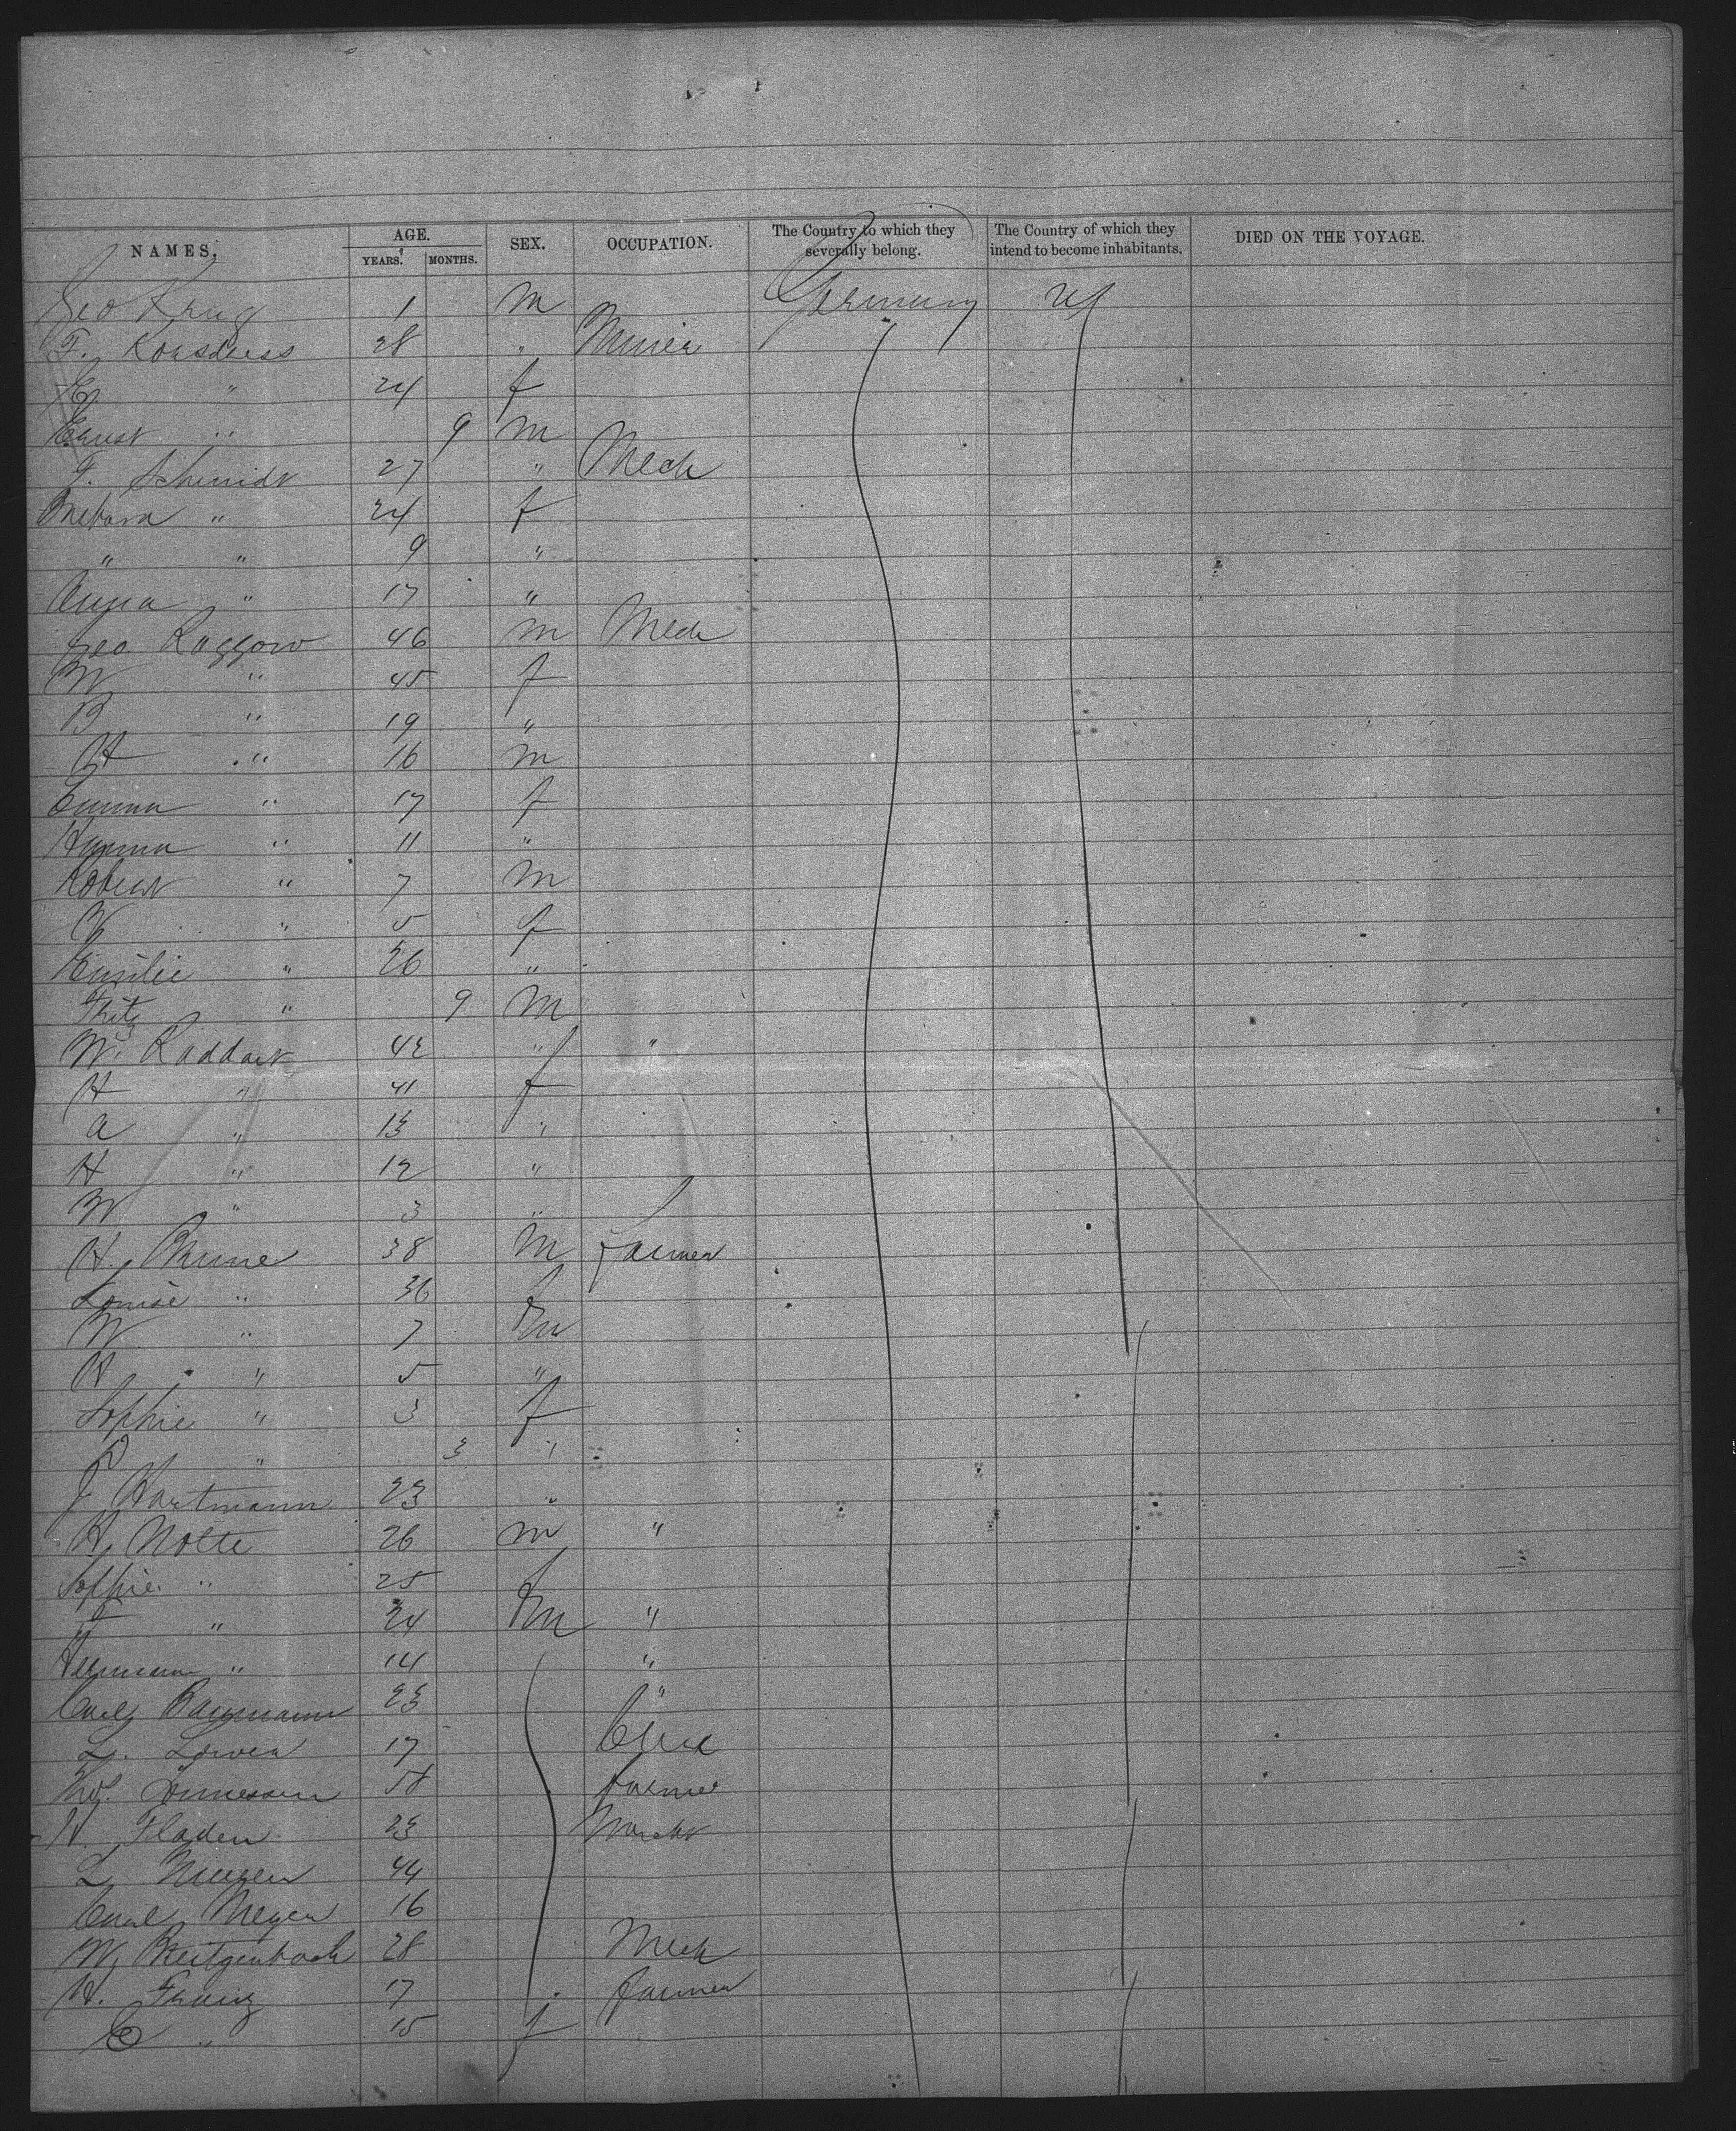 NAMES. AGE. SEX. OCCUPATION. The Country to which they severally belong. The Country of which they intend to become inhabitants. DIED ON THE VOYAGE.
YEARS. MONTHS.
Geo Krug 1 m Germany US
F. 28 " Miner
" 24 f
Ernst " 9 m
F. Schmidt 27 " Mech
" 24 f
" " 9 "
Anna " 17 "
Geo Raggow 46 m Mech
W " 45 f
B " 19 "
H " 16 m
Emma " 17 f
" 11 "
Robert " 7 m
" 5 f
Emilie " 26 "
Fritz " 9 m
W. Raddart 42 " "
H " 41 f
A " 13 "
H " 12 "
W " 3 "
H. 38 m farmer
Louise " 36 f
W " 7 m
H " 5 "
Sophie " 3 f
" 3 "
J Hartmann 23 "
H. Nolte 26 m "
Sophie " 25 f
" 24 m "
Hermann " 14 "
Carl Baumann 23 "
L. 17
58 farmer
H. Fladen 23
L 44
Carl Meyer 16
W. 28 Mech
H. 17 farmer
C " 15 f